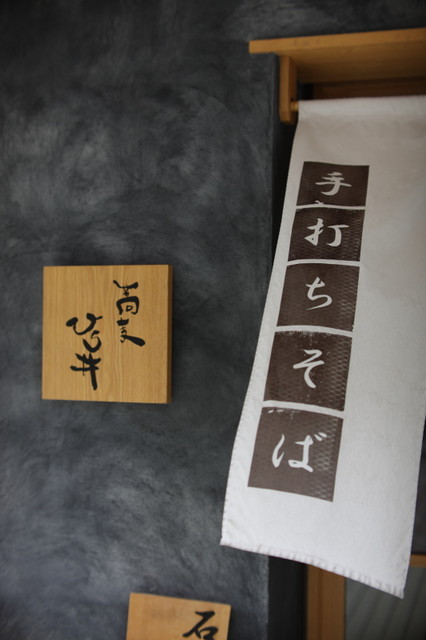 手打ちそば
蕎麦
ひら井
石